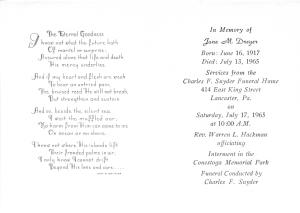 The Eternal Goodness
I know not what the future hath
Of marvel or surprise;
Assured alone that life and death
His mercy underlies.
And if my heart and flesh are weak
To bear an untried pain,
The bruised reed He will not break,
But strengthen and sustain.
And so, beside the silent sea,
I wait the muffled oar;
No harm from Him can come to me
On ocean or on shore.
I know not where His islands lift
Their fronded palms in air;
I only know I cannot drift
Beyond His love and care....
In Memory of
Jane M. Dwyer
Born: June 16, 1917
Died: July 13, 1965
Services from the
Charles F. Snyder Funeral Home
414 East King Street
Lancaster, Pa.
on
Saturday, July 17, 1965
at 10:00 A.M.
Rev. Warren L. Hackman
officiating
Interment in the
Conestoga Memorial Park
Funeral Conducted by
Charles F. Snyder